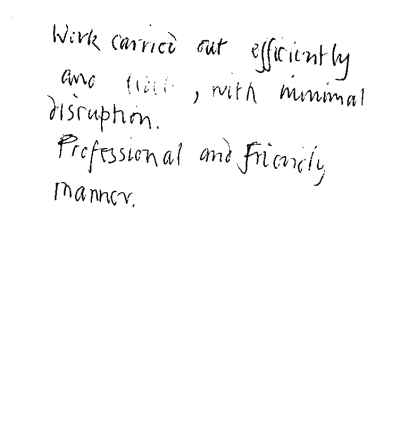 Work carried out efficiently
and , with minimal
disruption.
Professional and friendly
manner.